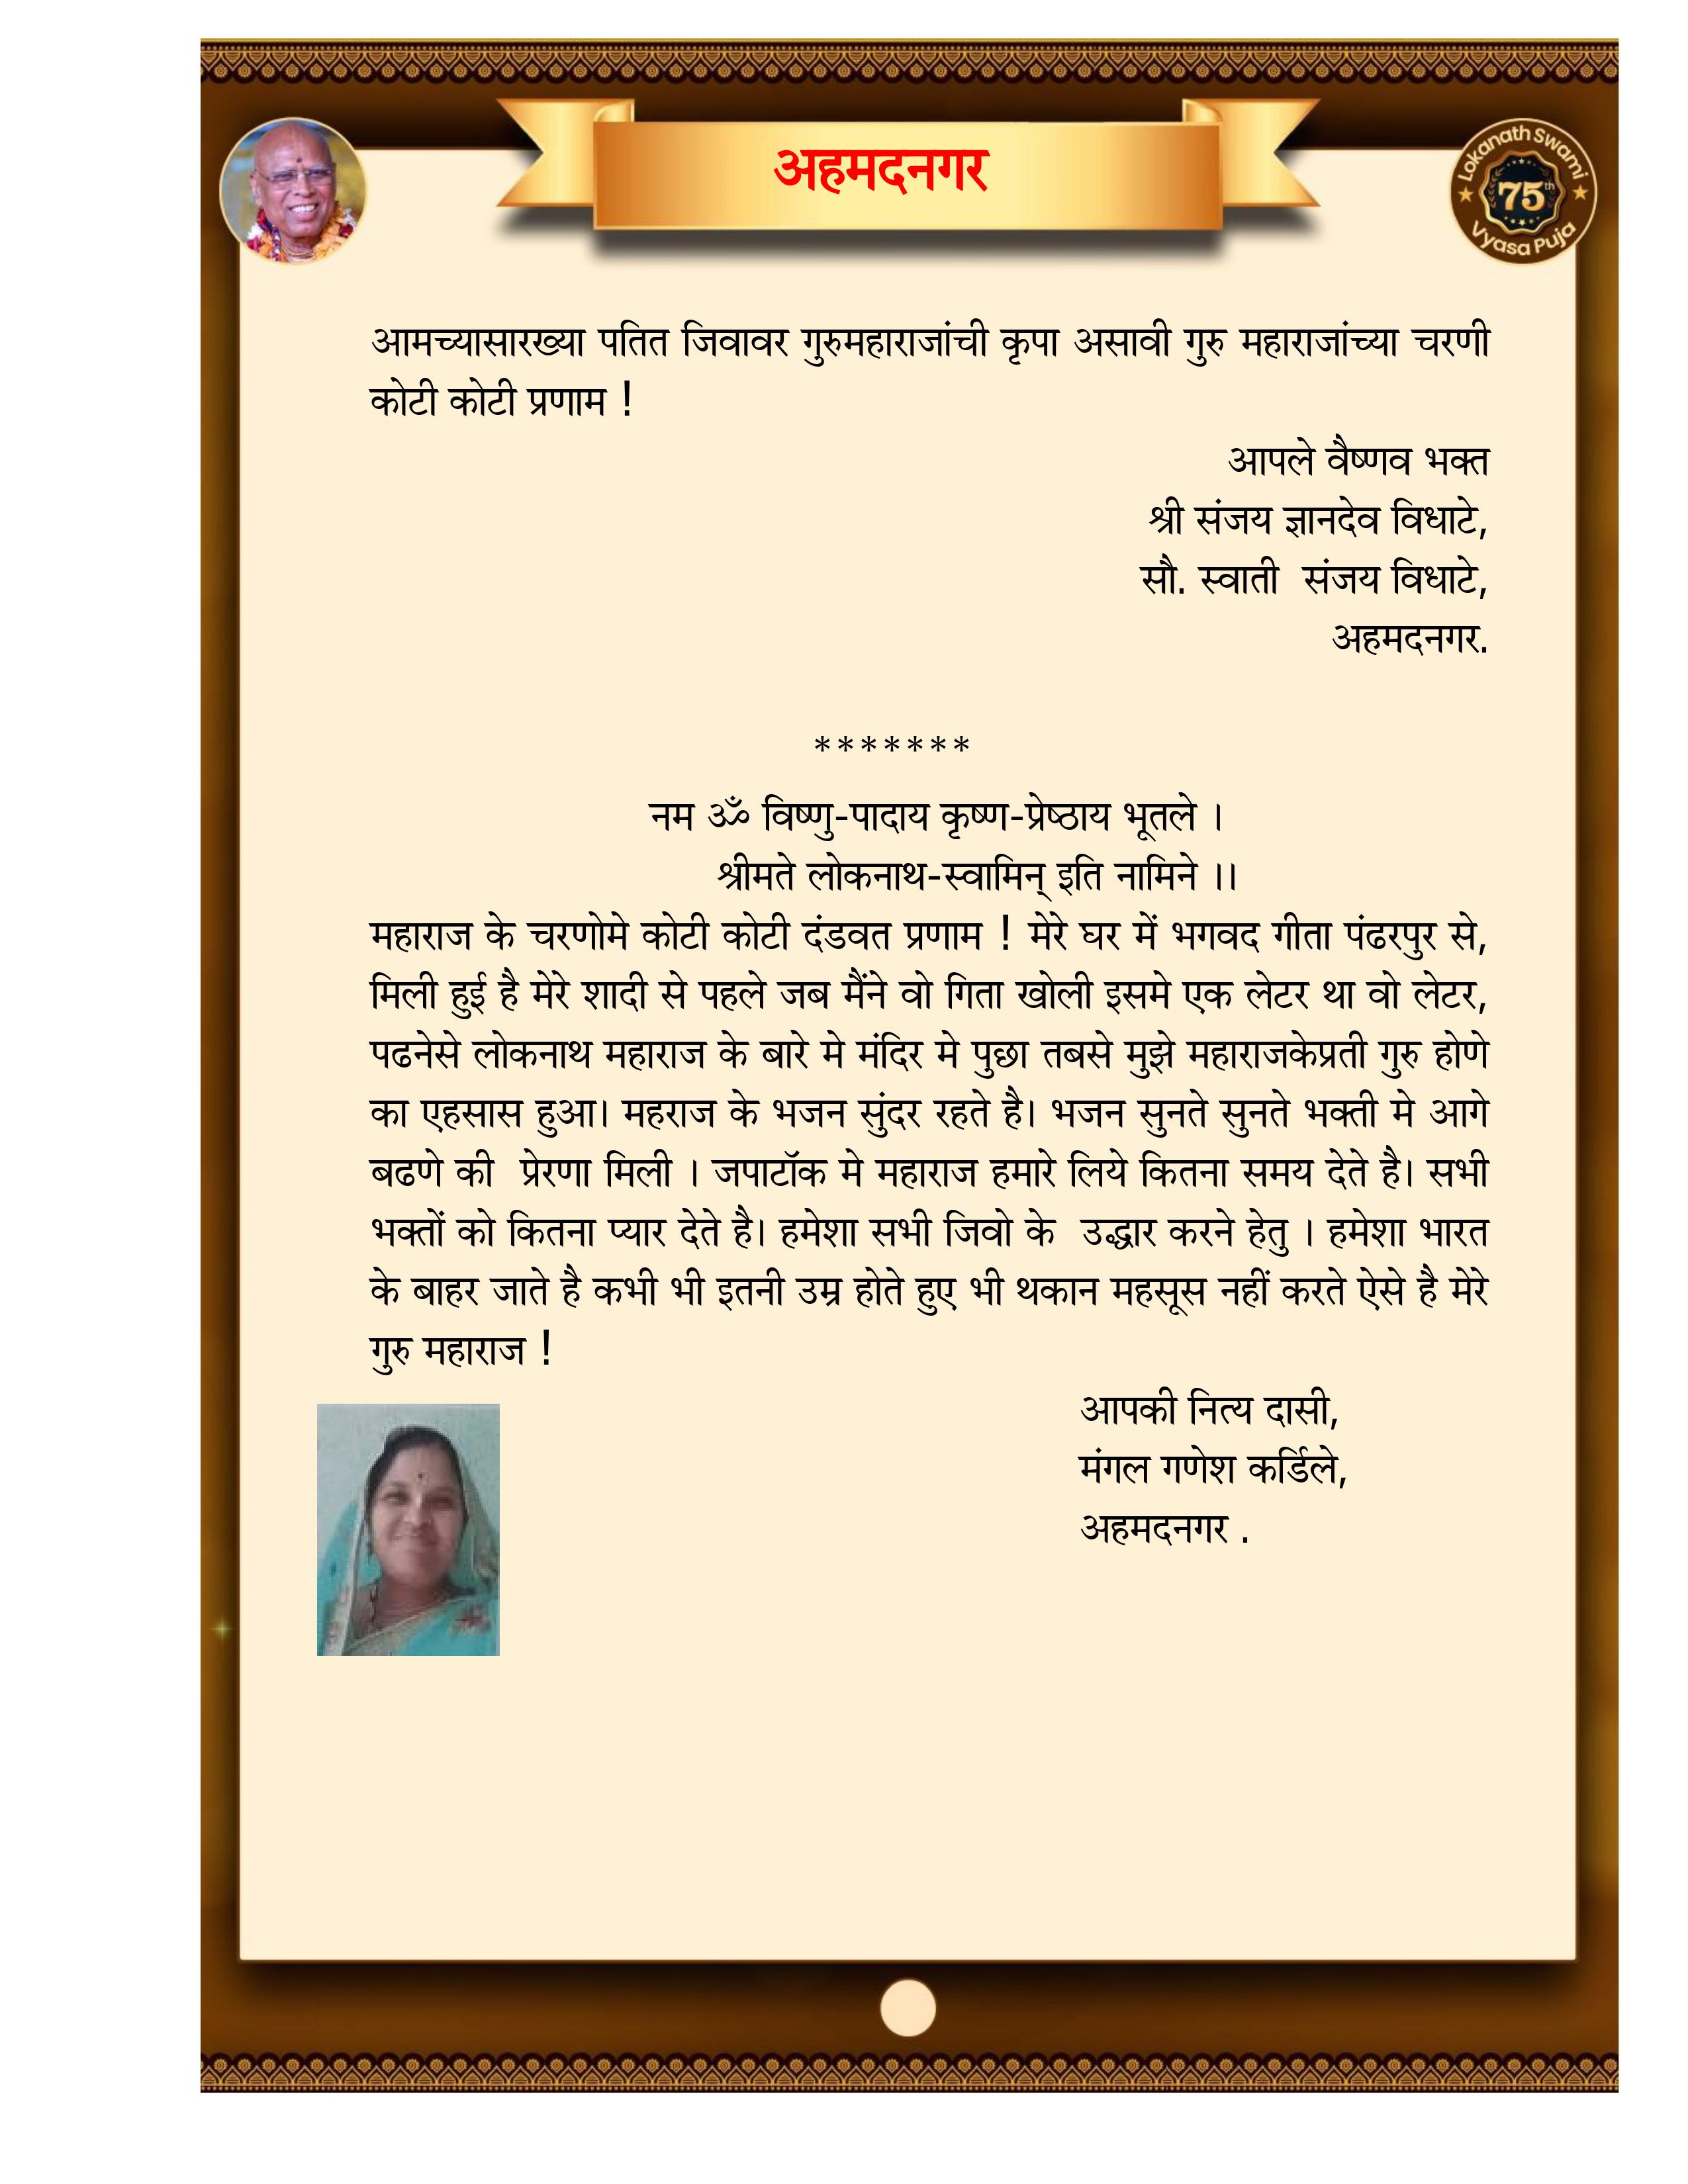 अहमदनगर
Lokanath Swami
75th
Vyasa Puja
आमच्यासारख्या पतित जिवावर गुरुमहाराजांची कृपा असावी गुरु महाराजांच्या चरणी
कोटी कोटी प्रणाम !
आपले वैष्णव भक्त
श्री संजय ज्ञानदेव विधाटे,
सौ. स्वाती संजय विधाटे,
अहमदनगर.
*******
नम ॐ विष्णु-पादाय कृष्ण-प्रेष्ठाय भूतले ।
श्रीमते लोकनाथ-स्वामिन् इति नामिने ।।
महाराज के चरणोमे कोटी कोटी दंडवत प्रणाम ! मेरे घर में भगवद गीता पंढरपुर से,
मिली हुई है मेरे शादी से पहले जब मैंने वो गिता खोली इसमे एक लेटर था वो लेटर,
पढनेसे लोकनाथ महाराज के बारे मे मंदिर मे पुछा तबसे मुझे महाराजकेप्रती गुरु होणे
का एहसास हुआ। महराज के भजन सुंदर रहते है। भजन सुनते सुनते भक्ती मे आगे
बढणे की प्रेरणा मिली । जपाटॉक मे महाराज हमारे लिये कितना समय देते है। सभी
भक्तों को कितना प्यार देते है। हमेशा सभी जिवो के उद्धार करने हेतु । हमेशा भारत
के बाहर जाते है कभी भी इतनी उम्र होते हुए भी थकान महसूस नहीं करते ऐसे है मेरे
गुरु महाराज !
आपकी नित्य दासी,
मंगल गणेश कर्डिले,
अहमदनगर .